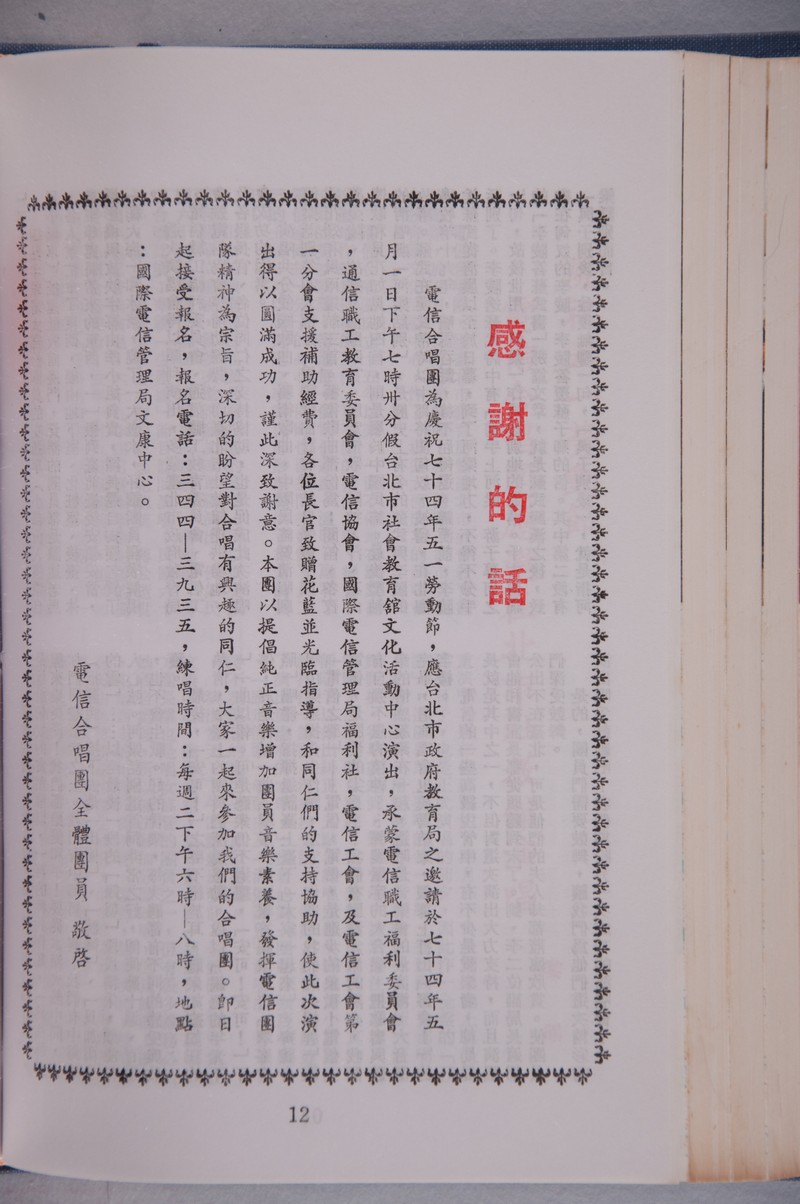 感謝的話
電信合唱團為慶祝七十四年五一勞動節，應台北市政府教育局之邀請於七十四年五
月一日下午七時卅分假台北市社會教育舘文化活動中心演出，承蒙電信職工福利委員會
，通信職工教育委員會，電信協會，國際電信管理局福利社，電信工會，及電信工會第
一分會支援補助經費，各位長官致贈花藍並光臨指導，和同仁們的支持協助，使此次演
出得以圓滿成功，謹此深致謝意。本團以提倡純正音樂增加團員音樂素養，發揮電信團
隊精神為宗旨，深切的盼望對合唱有興趣的同仁，大家一起來參加我們的合唱團。即日
起接受報名，報名電話：三四四—三九三五，練唱時間：每週二下午六時—八時，地點
：國際電信管理局文康中心。
電信合唱團全體團員 敬啓
12